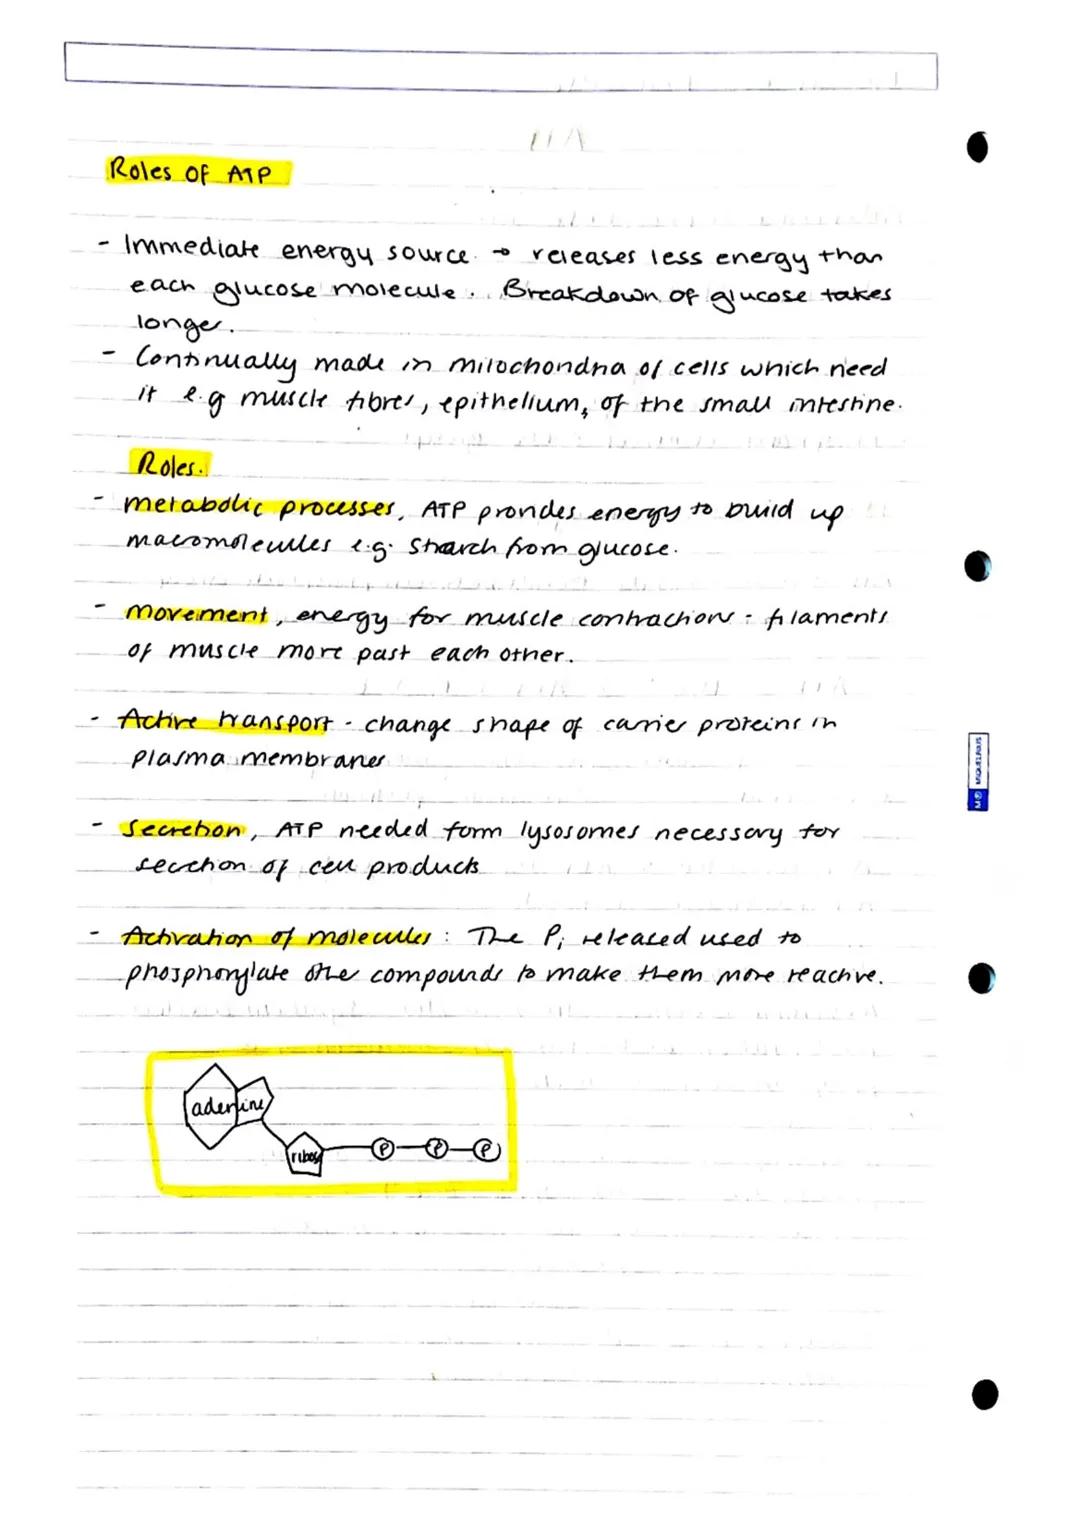 Roles of ATP
- Immediate energy source. → releases less energy than
each glucose molecule. Breakdown of glucose takes
longer.
- Continually made in mitochondria of cells which need
it e.g muscle fibres, epithelium, of the small intestine.
Roles.
- metabolic processes, ATP provides energy to build up
macromolecules e.g. starch from glucose.
- movement, energy for muscle contractions - filaments
of muscle move past each other.
- Active transport - change shape of carrier proteins in
plasma membranes
- secretion, ATP needed form lysosomes necessary for
secretion of cell products
- Activation of molecules: The Pi released used to
phosphorylate othe compounds to make them more reactive.
adenine
ribose
P P P
MIQUELRIUS